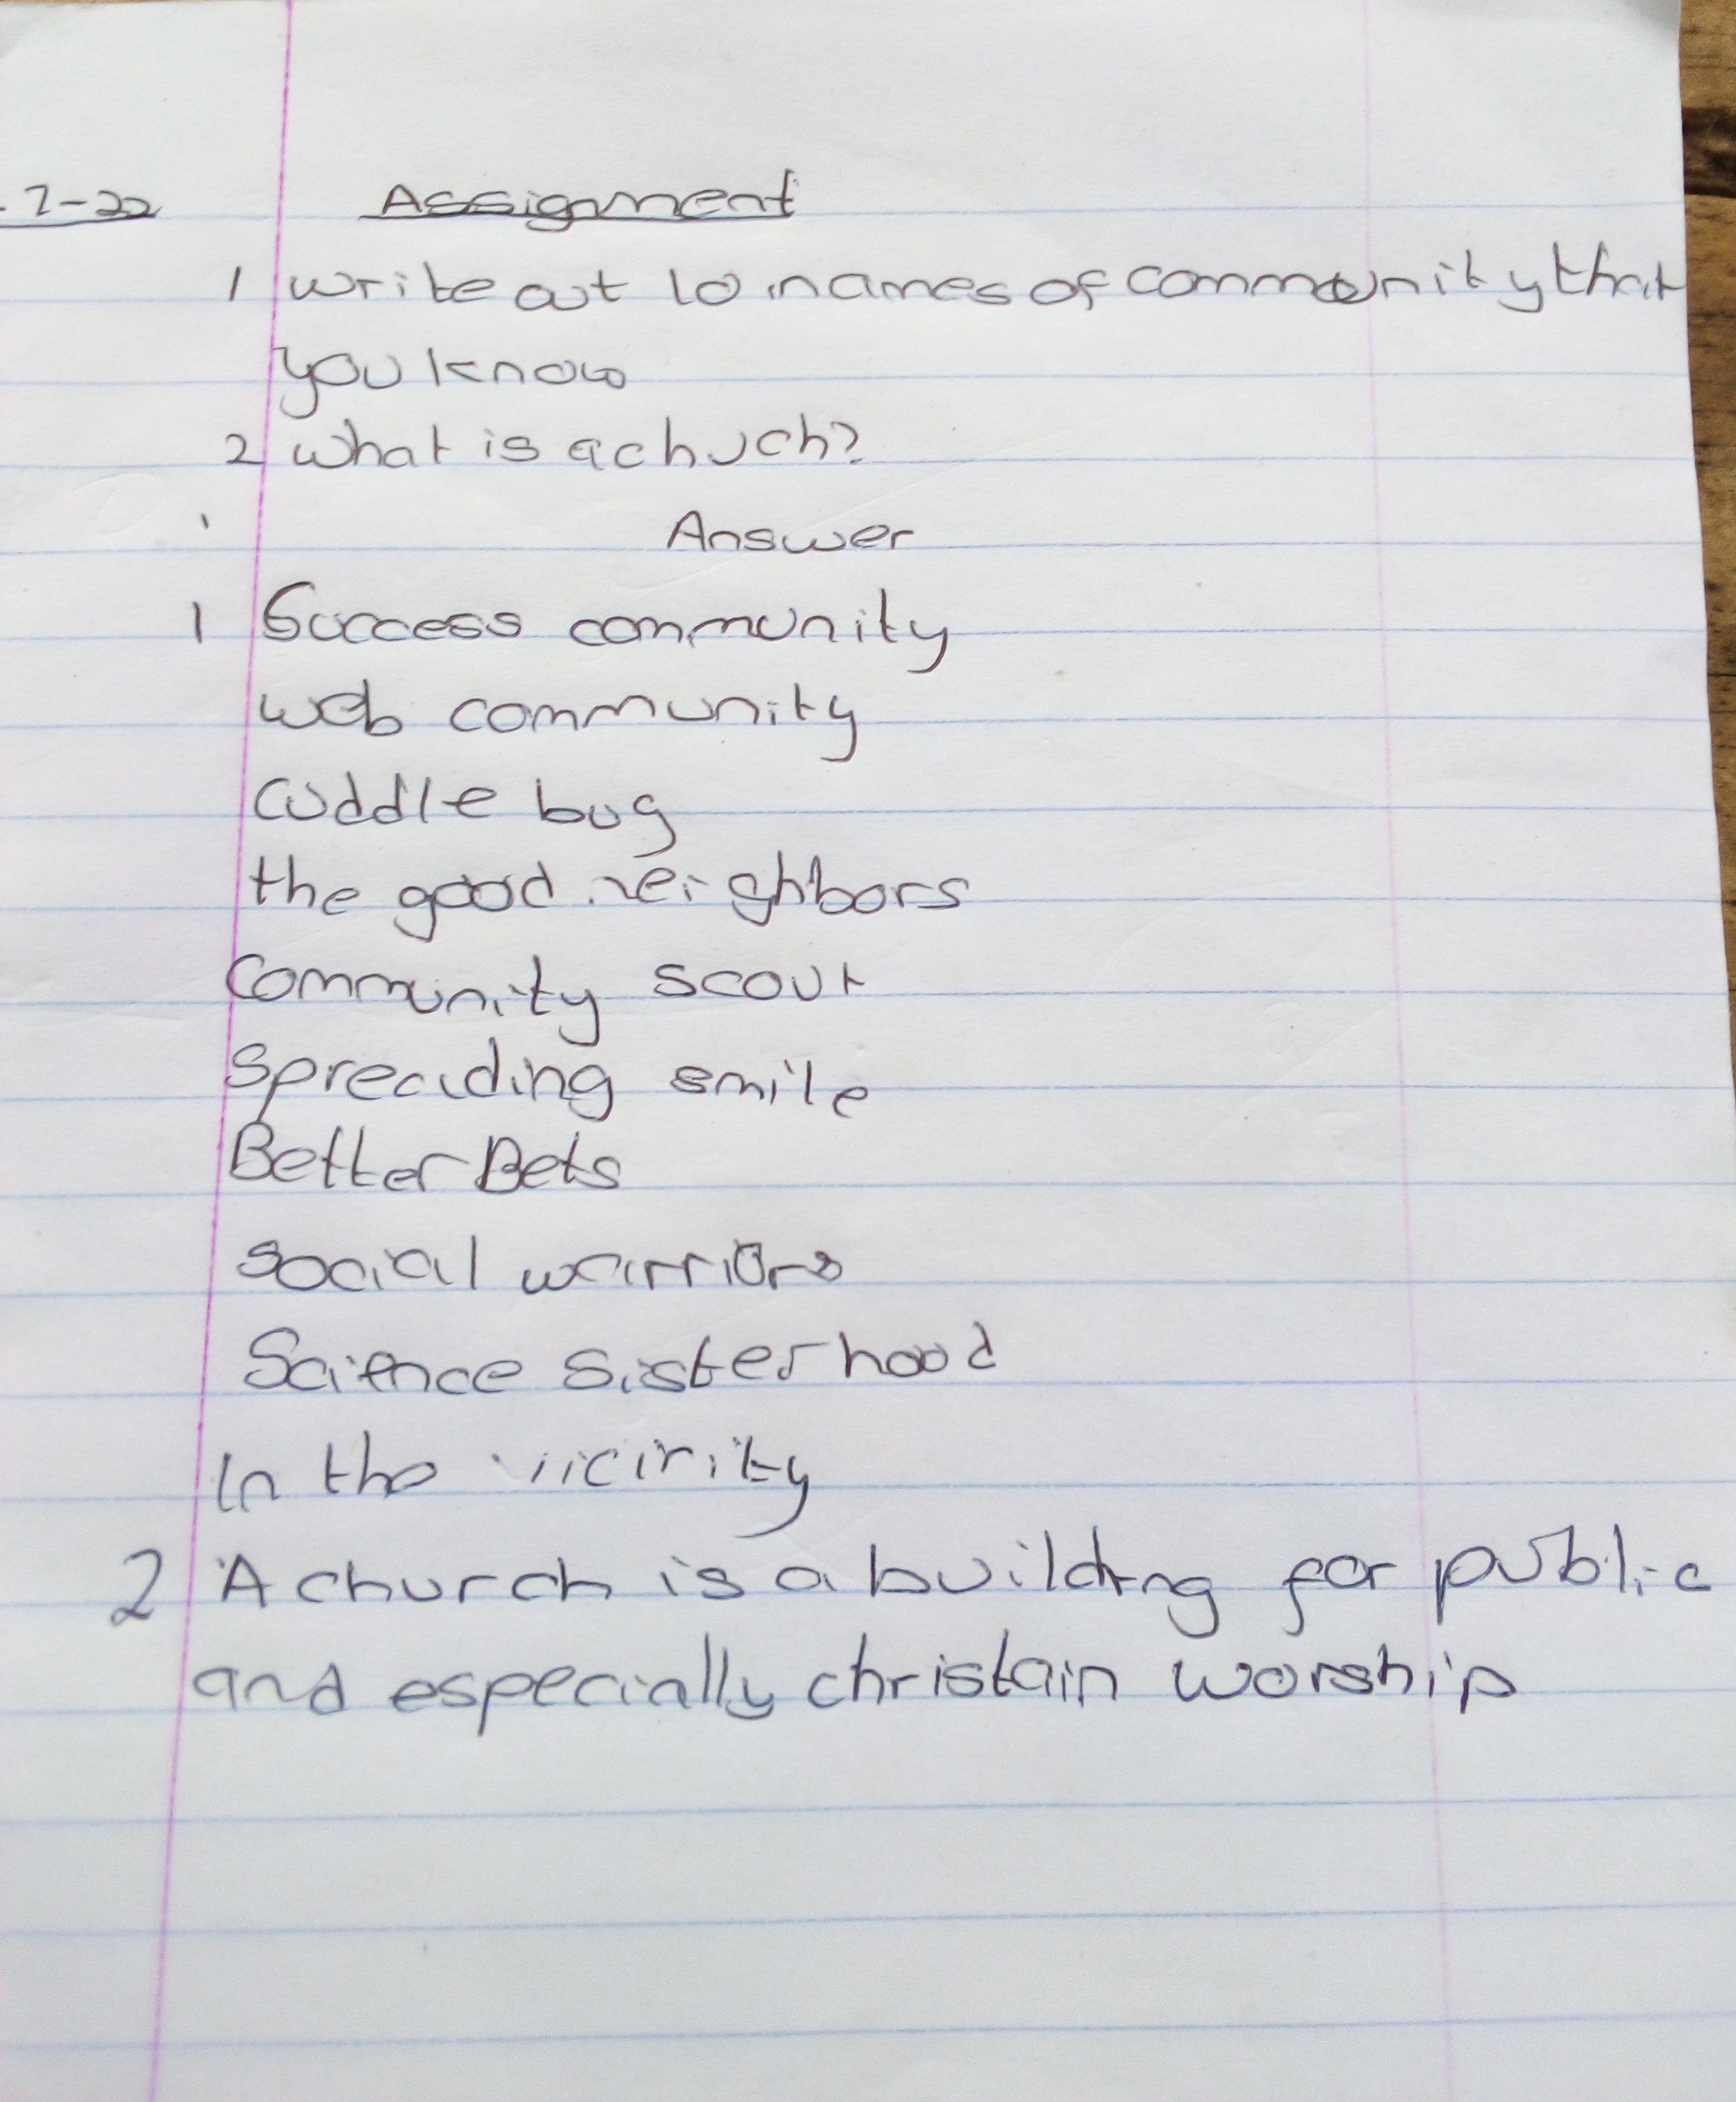 7-22 Assignment
1 write out 10 names of community that
you know
2 what is a chuch?
Answer
1 Success community
web community
cuddle bug
the good neighbors
Community scout
Spreading smile
Better Bets
social warriors
Science Sisterhood
In the vicinity
2 A church is a building for public
and especially christain worship